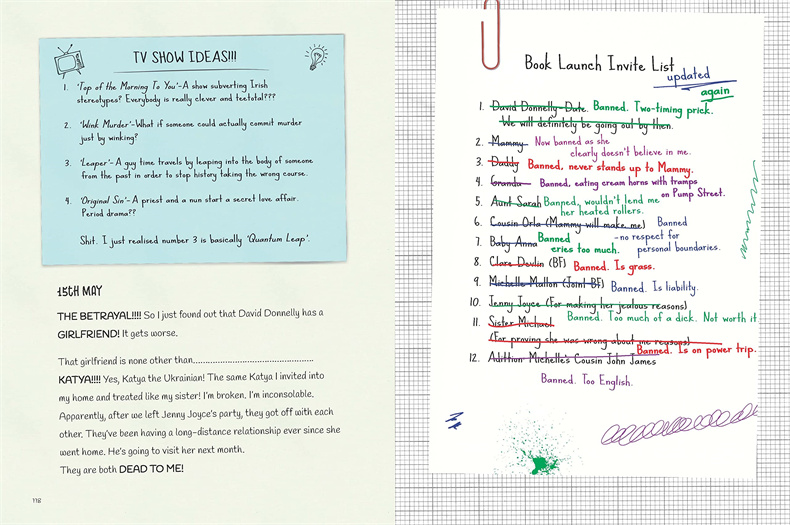 TV SHOW IDEAS!!!
1. 'Top of the Morning To You'-A show subverting Irish
stereotypes? Everybody is really clever and teetotal???
2. 'Wink Murder'-What if someone could actually commit murder
just by winking?
3. 'Leaper'-A guy time travels by leaping into the body of someone
from the past in order to stop history taking the wrong course.
4. 'Original Sin'-A priest and a nun start a secret love affair.
Period drama??
Shit. I just realised number 3 is basically 'Quantum Leap'.
15TH MAY
THE BETRAYAL!!!! So I just found out that David Donnelly has a
GIRLFRIEND! It gets worse.
That girlfriend is none other than..................................................
KATYA!!!! Yes, Katya the Ukrainian! The same Katya I invited into
my home and treated like my sister! I'm broken. I'm inconsolable.
Apparently, after we left Jenny Joyce's party, they got off with each
other. They've been having a long-distance relationship ever since she
went home. He's going to visit her next month.
They are both DEAD TO ME!
118
Book Launch Invite List
updated
again
1. David Donnelly-Date. Banned. Two-timing prick.
We will definitely be going out by then.
2. Mammy Now banned as she
clearly doesn't believe in me.
3. Daddy Banned, never stands up to Mammy.
4. Granda Banned, eating cream horns with tramps
on Pump Street.
5. Aunt Sarah Banned, wouldn't lend me
her heated rollers.
6. Cousin Orla (Mammy will make me) Banned
-no respect for
personal boundaries.
7. Baby Anna Banned
cries too much.
8. Clare Devlin (BF) Banned. Is grass.
9. Michelle Mallon (Joint BF) Banned. Is liability.
10. Jenny Joyce (For making her jealous reasons)
Banned. Too much of a dick. Not worth it.
11. Sister Michael
(For proving she was wrong about me reasons)
Banned. Is on power trip.
12. Addition Michelle's Cousin John James
Banned. Too English.